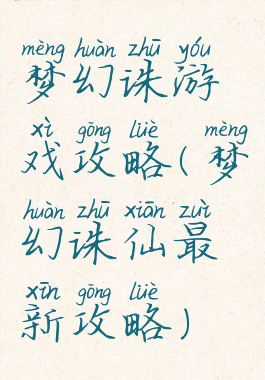 mèng huàn zhū yóu
梦幻诛游
xì gōng lüè ( mèng
戏攻略(梦
huàn zhū xiān zuì
幻诛仙最
xīn gōng lüè
新攻略)